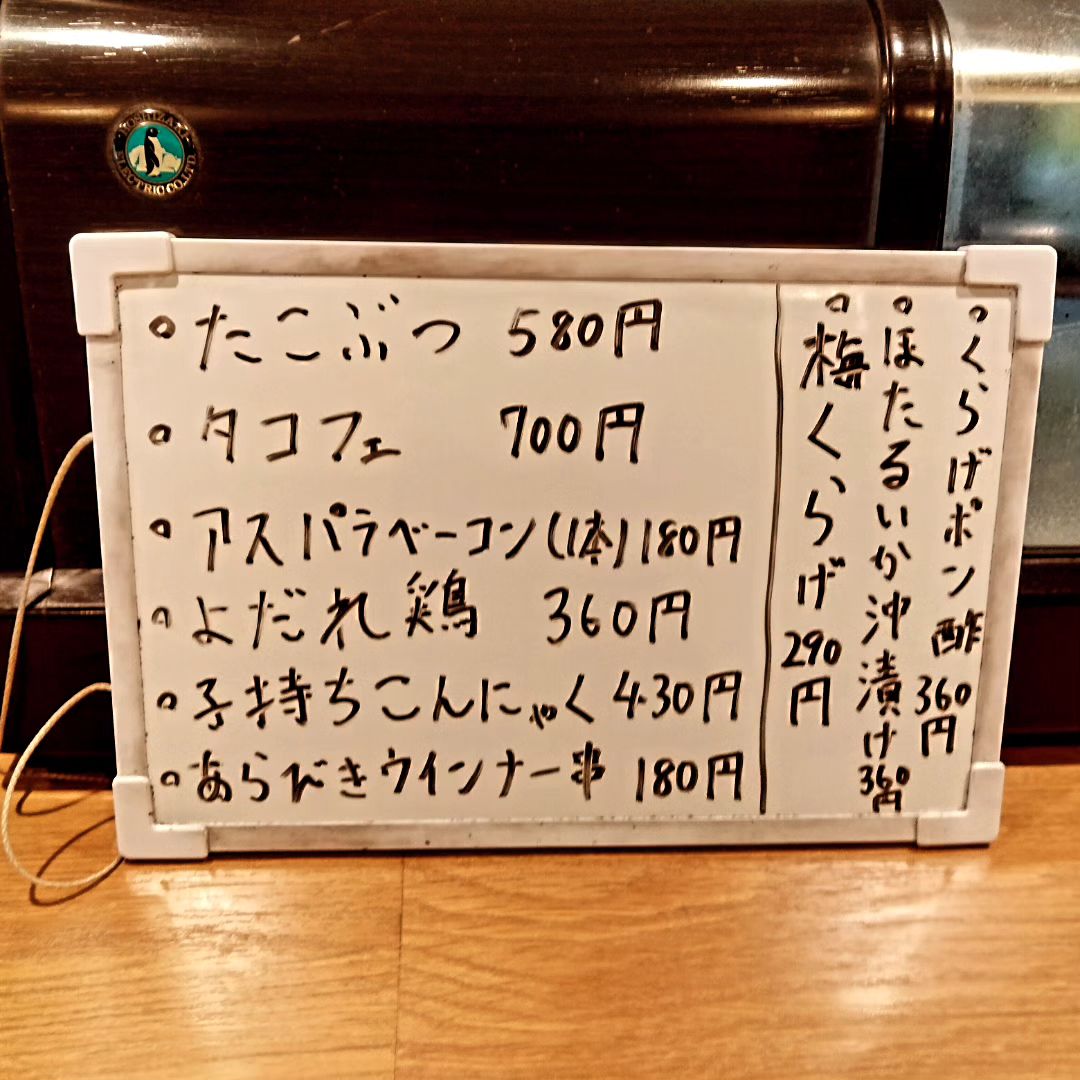 HOSHIZAKI
ELECTRIC CO.,LTD.
。たこぶつ 580円
。タコフェ 700円
。アスパラベーコン(1本)180円
。よだれ鶏 360円
。子持ちこんにゃく 430円
。あらびきウインナー串 180円
。くらげポン酢 360円
。ほたるいか沖漬け 360円
。梅くらげ 290円